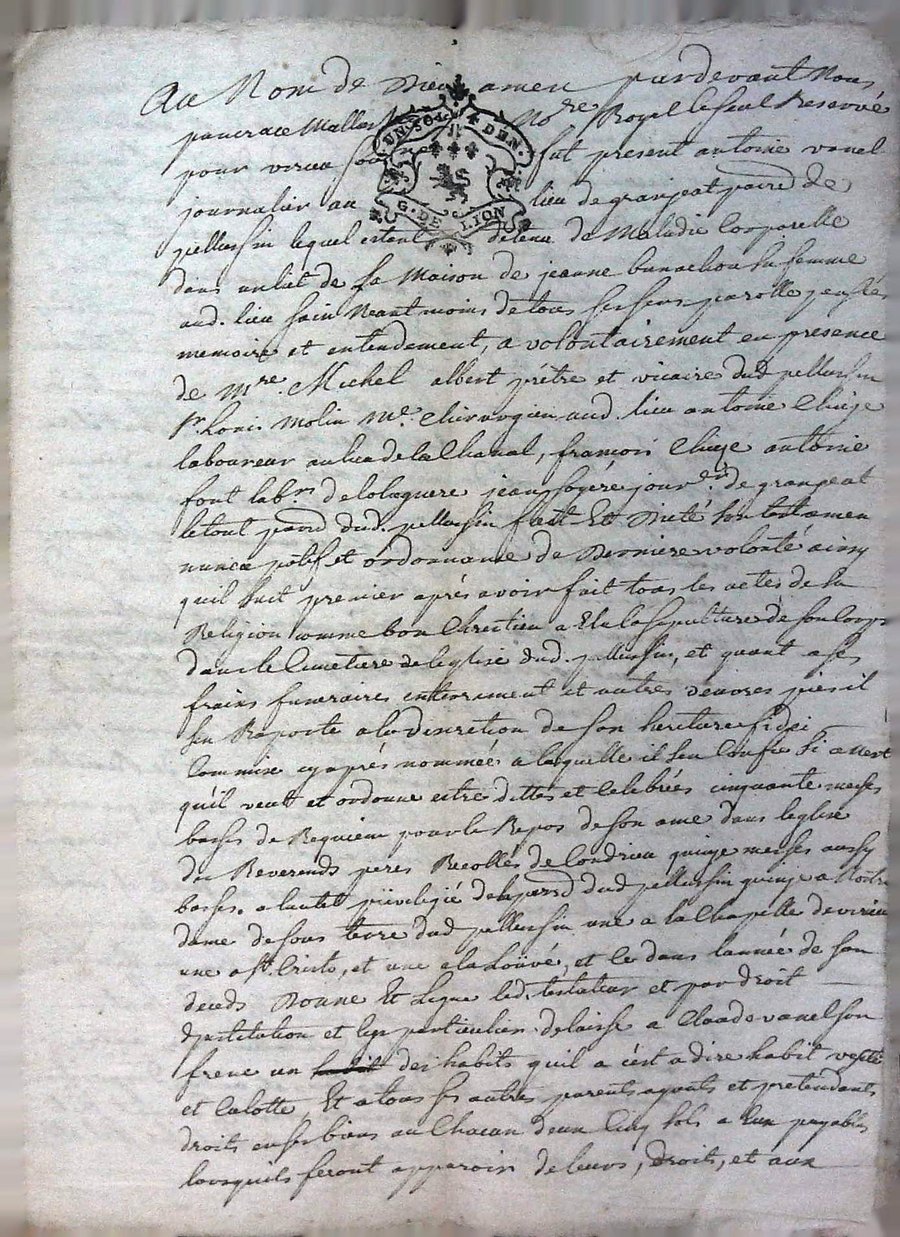 Au Nom de Dieu amen pardevant Nous
pancrace Mallas No.re Royal le seul Reservé
pour virieu fut present antoine vanel
journalier au lieu de granjeat parr.d de
pellussin lequel estant détenu de Maladie Corporelle
dans un lict de sa Maison de jeanne bonachon sa femme
aud. lieu sain Neantmoins de tous ses sens parolle pensée
memoire et entendement, a volontairement en presence
de M.re Michel albert prêtre et vicaire dud pellussin
s.r Louis molin M.e Chirurgien aud. lieu antoine
laboureur au lieu de la Chanal, françois antoine
font lab.r de jean jour.er de granjeat
le tout parr.d dud. pellussin fait Et Dicté son testamen
nuncupatif et ordonnance de Derniere volonté ainsy
quil suit premier aprés avoir fait tous les actes de la
Religion comme bon Chrestien a Elu la sepulture de son Corps
dans le Cimetiere de leglise dud. pellussin, et quant a ses
frais funeraires enterrement et autres œuvres pies il
sen Raporte a la discretion de son heritiere fidei
Commise cy aprés nommée a laquelle il sen Confie si a
quil veut et ordonne estre dittes et Celebrées cinquante messes
basses de Requiem pour le Repos de son ame dans leglise
des Reverends peres Recollés de Condrieu quinze messes aussy
basses a lautel privilejié de la parr.d dud pellussin quinze a Nostre
dame de sous terre dud pellussin une a la Chapelle de virieu
une a s.t Criste, et une a la Louve, et Ce dans lannée de son
deceds Donne Et Legue led. testateur et par droit
dinstitution et legs particulier delaisse a Claude vanel son
frere un des habits quil a cest a dire habit veste
et Culotte, Et a tous ses autres parents ayants et pretendants
droits en ses biens au Chacun deux Cinq sols a Eux payables
lorsquils feront apparoir de leurs, droit, et aux
UN. SOL. 4 DEN.
G. DE LION